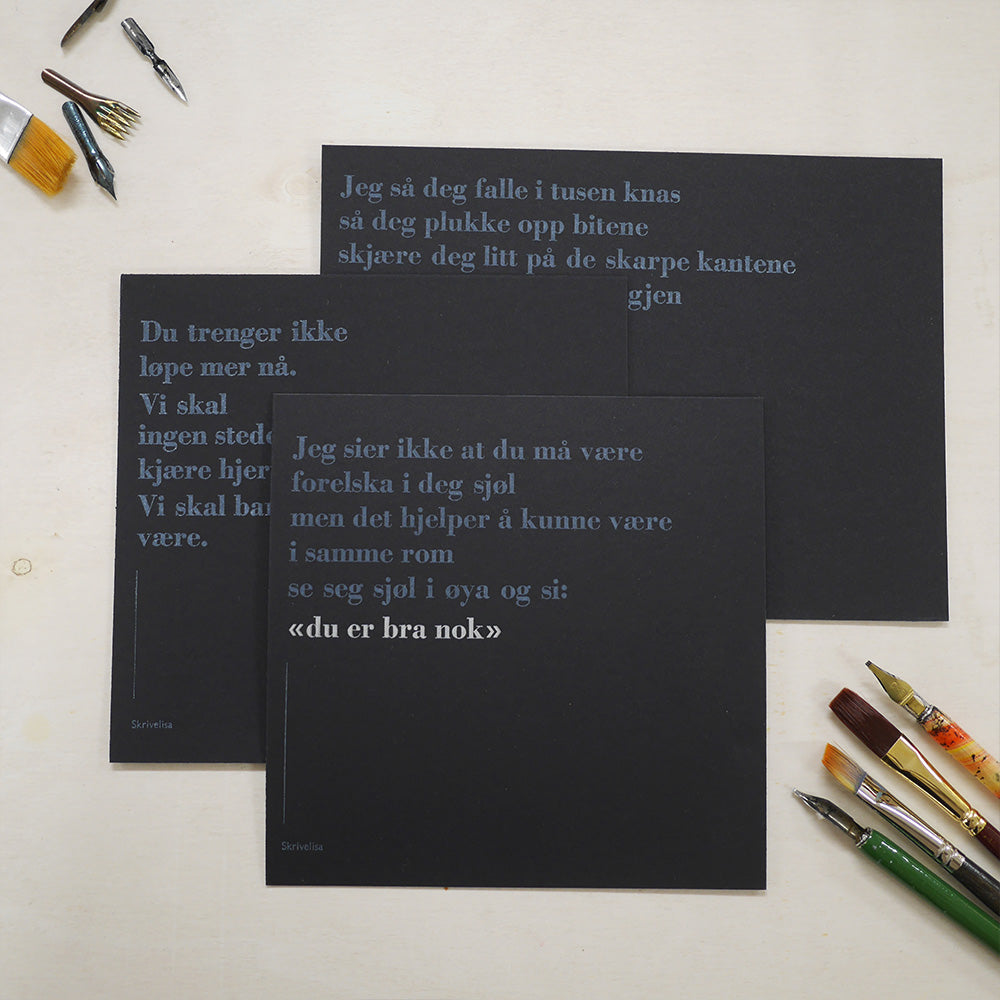 Jeg så deg falle i tusen knas
så deg plukke opp bitene
skjære deg litt på de skarpe kantene
gjen
Du trenger ikke
løpe mer nå.
Vi skal
ingen
kjære
Vi skal
være.
Skrivelisa
Jeg sier ikke at du må være
forelska i deg sjøl
men det hjelper å kunne være
i samme rom
se seg sjøl i øya og si:
«du er bra nok»
Skrivelisa